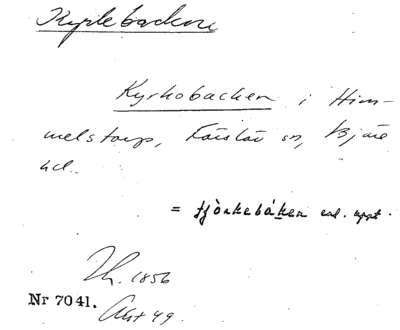 Kyrkebacken
Kyrkobacken i Him-
melstorp, Färslöv sn, Bjäre
hd.
= enl. uppt.
Th. 1856
Nr 7041.
Akt 49